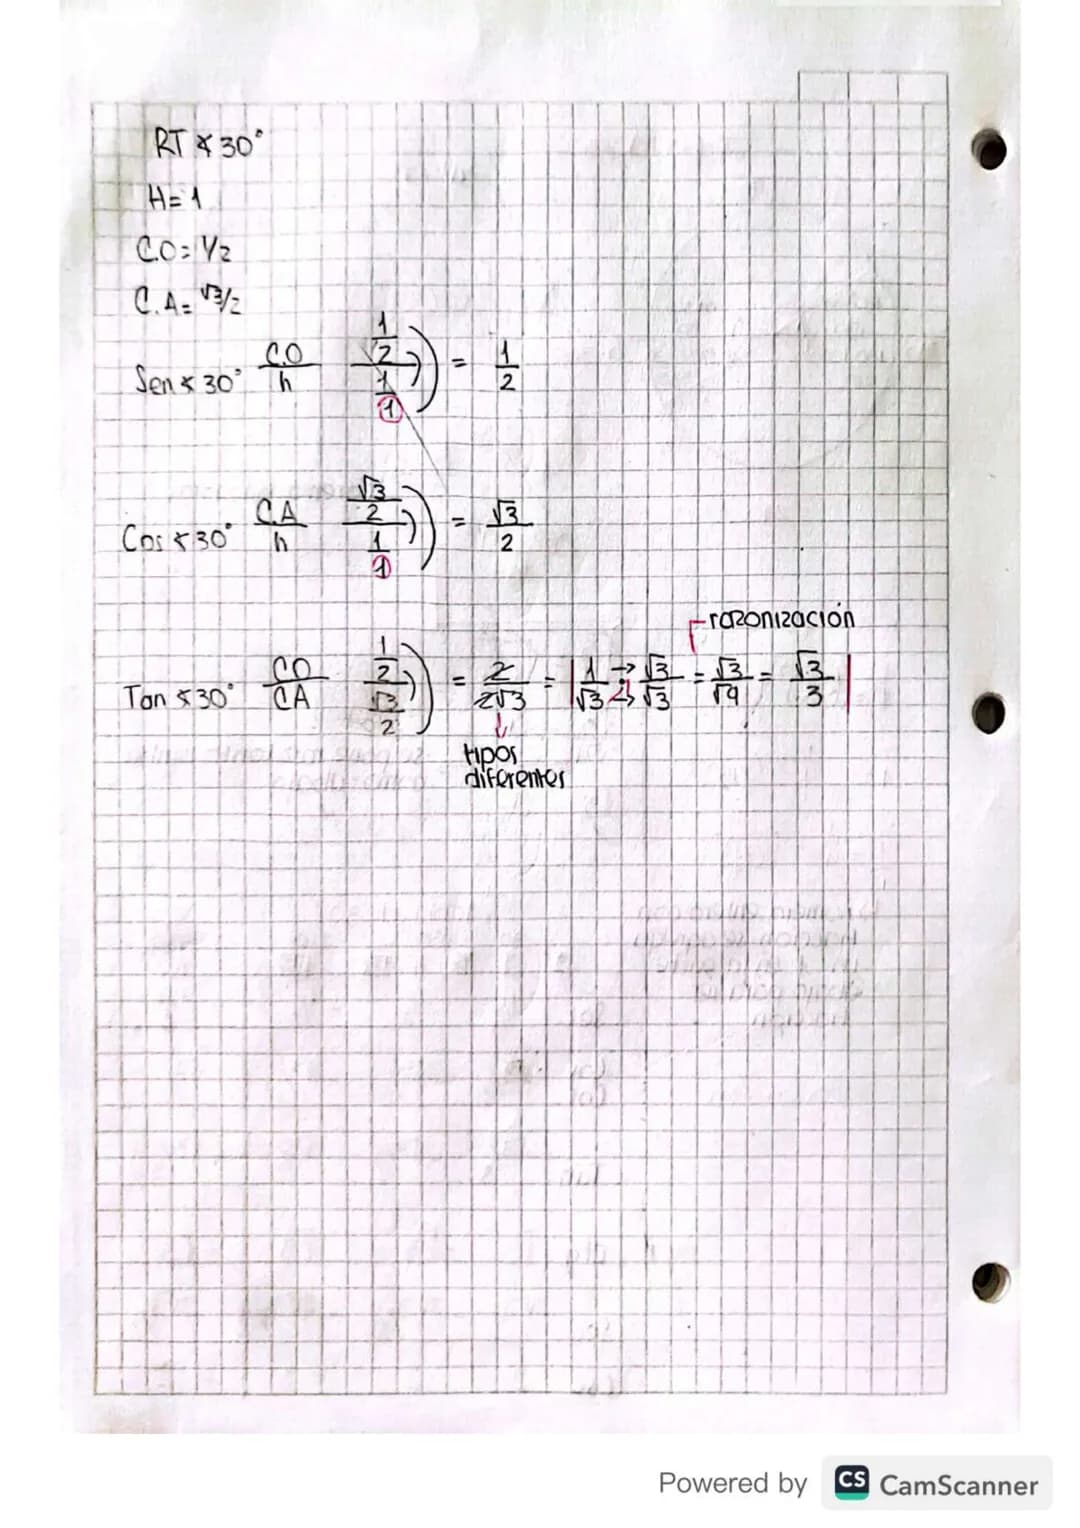 RT ∡ 30°
H = 1
C.O = 1/2
C.A = √3/2
Sen ∡ 30° C.O/h (1/2)/(1/1) = 1/2
Cos ∡ 30° C.A/h (√3/2)/(1/1) = √3/2
razonización
Tan ∡ 30° CO/CA (1/2)/(√3/2) = 2/2√3 = 1/√3 → √3/√3 = √3/√9 = √3/3
tipos
diferentes
Powered by CS CamScanner